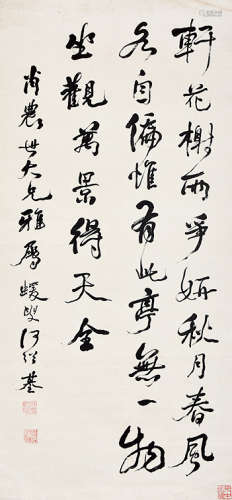 軒花榭雨爭妍秋月春風
各自偏惟有此亭無一物
坐觀萬景得天全
尚農世大兄雅屬 蝯叟何紹基